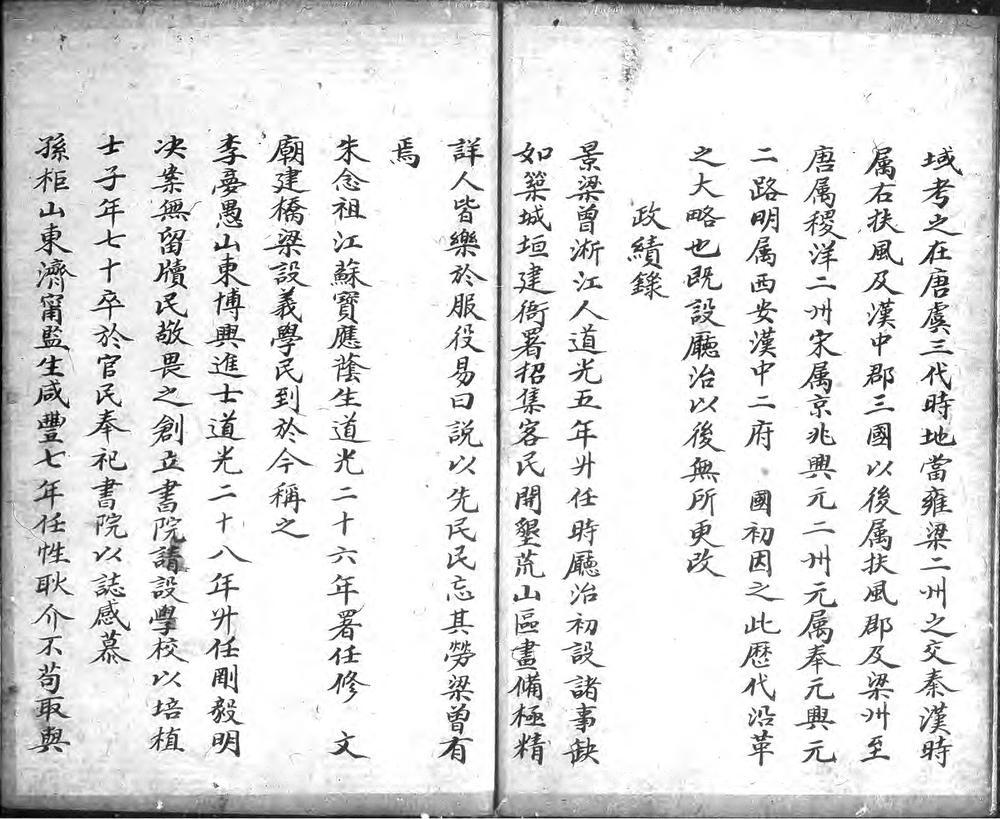 域考之在唐虞三代時地當雍梁二州之交秦漢時
属右扶風及漢中郡三國以後属扶風郡及梁州至
唐属稷洋二州宋属京兆興元二州元属奉元興元
二路明属西安漢中二府 國初因之此歷代沿革
之大略也既設廳治以後無所更改
政績錄
景梁曾淅江人道光五年升任時廳治初設諸事缺
如築城垣建衙署招集客民開墾荒山區畫備極精
詳人皆樂於服役易曰説以先民民忘其勞梁曾有
焉
朱念祖江蘇寶應蔭生道光二十六年署任修 文
廟建橋梁設義學民到於今稱之
李䕫愚山東博興進士道光二十八年升任剛毅明
决案無留牘民敬畏之創立書院請設學校以培植
士子年七十卒於官民奉祀書院以誌感慕
孫柜山東濟甯監生咸豐七年任性耿介不苟取與